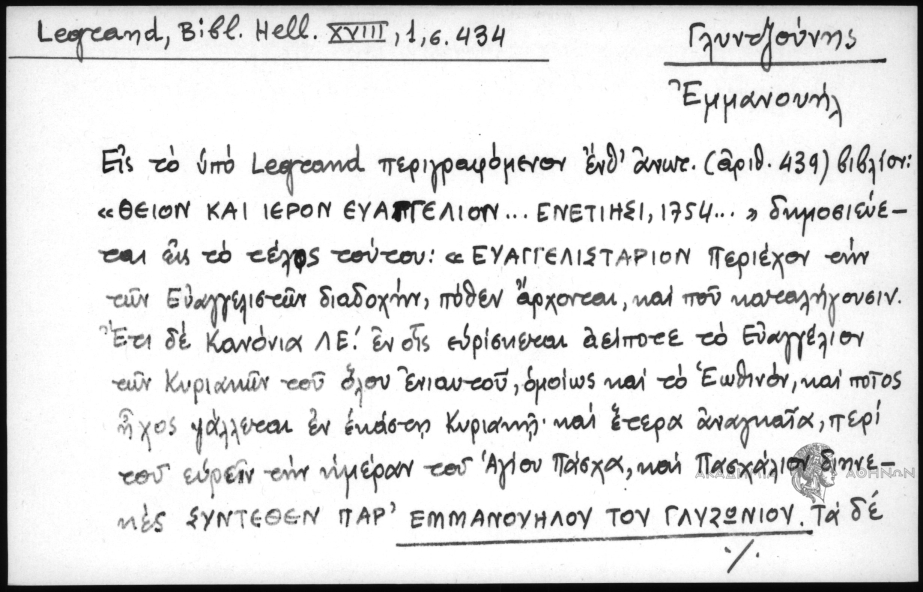 Legrand, Bibl. Hell. XVIII, 1, σ. 434
Γλυντζούνης
Ἐμμανουήλ
Εἰς τὸ ὑπὸ Legrand περιγραφόμενον ἔνθ' ἀνωτ. (ἀριθ. 439) βιβλίον:
«ΘΕΙΟΝ ΚΑΙ ΙΕΡΟΝ ΕΥΑΓΓΕΛΙΟΝ... ΕΝΕΤΙΗΣΙ, 1754...» δημοσιεύε-
ται εἰς τὸ τέλος τούτου: «ΕΥΑΓΓΕΛΙΣΤΑΡΙΟΝ Περιέχον τὴν
τῶν Εὐαγγελιστῶν διαδοχήν, πόθεν ἄρχονται, καὶ ποῦ καταλήγουσιν.
Ἔτι δὲ Κανόνια ΛΕ΄. ἐν οἷς εὑρίσκεται ἀείποτε τὸ Εὐαγγέλιον
τῶν Κυριακῶν τοῦ ὅλου ἐνιαυτοῦ, ὁμοίως καὶ τὸ Ἑωθινόν, καὶ ποῖος
ἦχος ψάλλεται ἐν ἑκάστῃ Κυριακῇ· καὶ ἕτερα ἀναγκαῖα, περὶ
τοῦ εὑρεῖν τὴν ἡμέραν τοῦ Ἁγίου Πάσχα, καὶ Πασχάλιον διηνε-
κὲς ΣΥΝΤΕΘΕΝ ΠΑΡ' ΕΜΜΑΝΟΥΗΛΟΥ ΤΟΥ ΓΛΥΖΩΝΙΟΥ. Τὰ δὲ
./.
ΑΚΑΔΗΜΙΑ ΑΘΗΝΩΝ